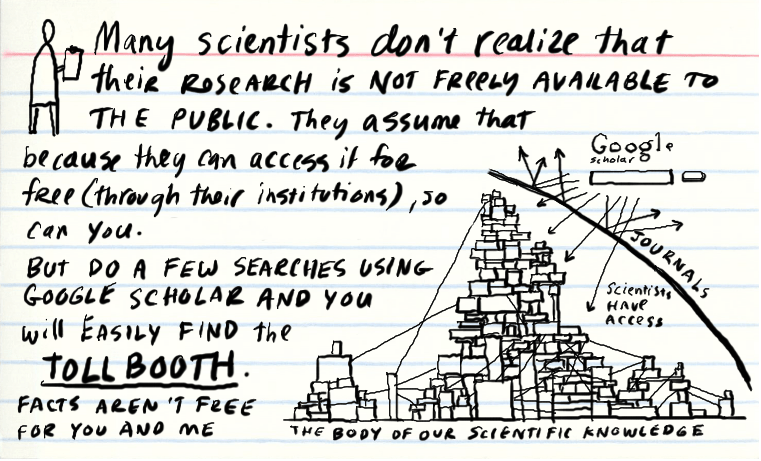 Many scientists don't realize that
their RESEARCH is NOT FREELY AVAILABLE TO
THE PUBLIC. They assume that
because they can access it for
free (through their institutions), so
can you.
BUT DO A FEW SEARCHES USING
GOOGLE SCHOLAR AND YOU
will EASILY FIND the
TOLL BOOTH.
FACTS AREN'T FREE
FOR YOU AND ME
Google
scholar
JOURNALS
Scientists
HAVE
ACCESS
THE BODY OF OUR SCIENTIFIC KNOWLEDGE